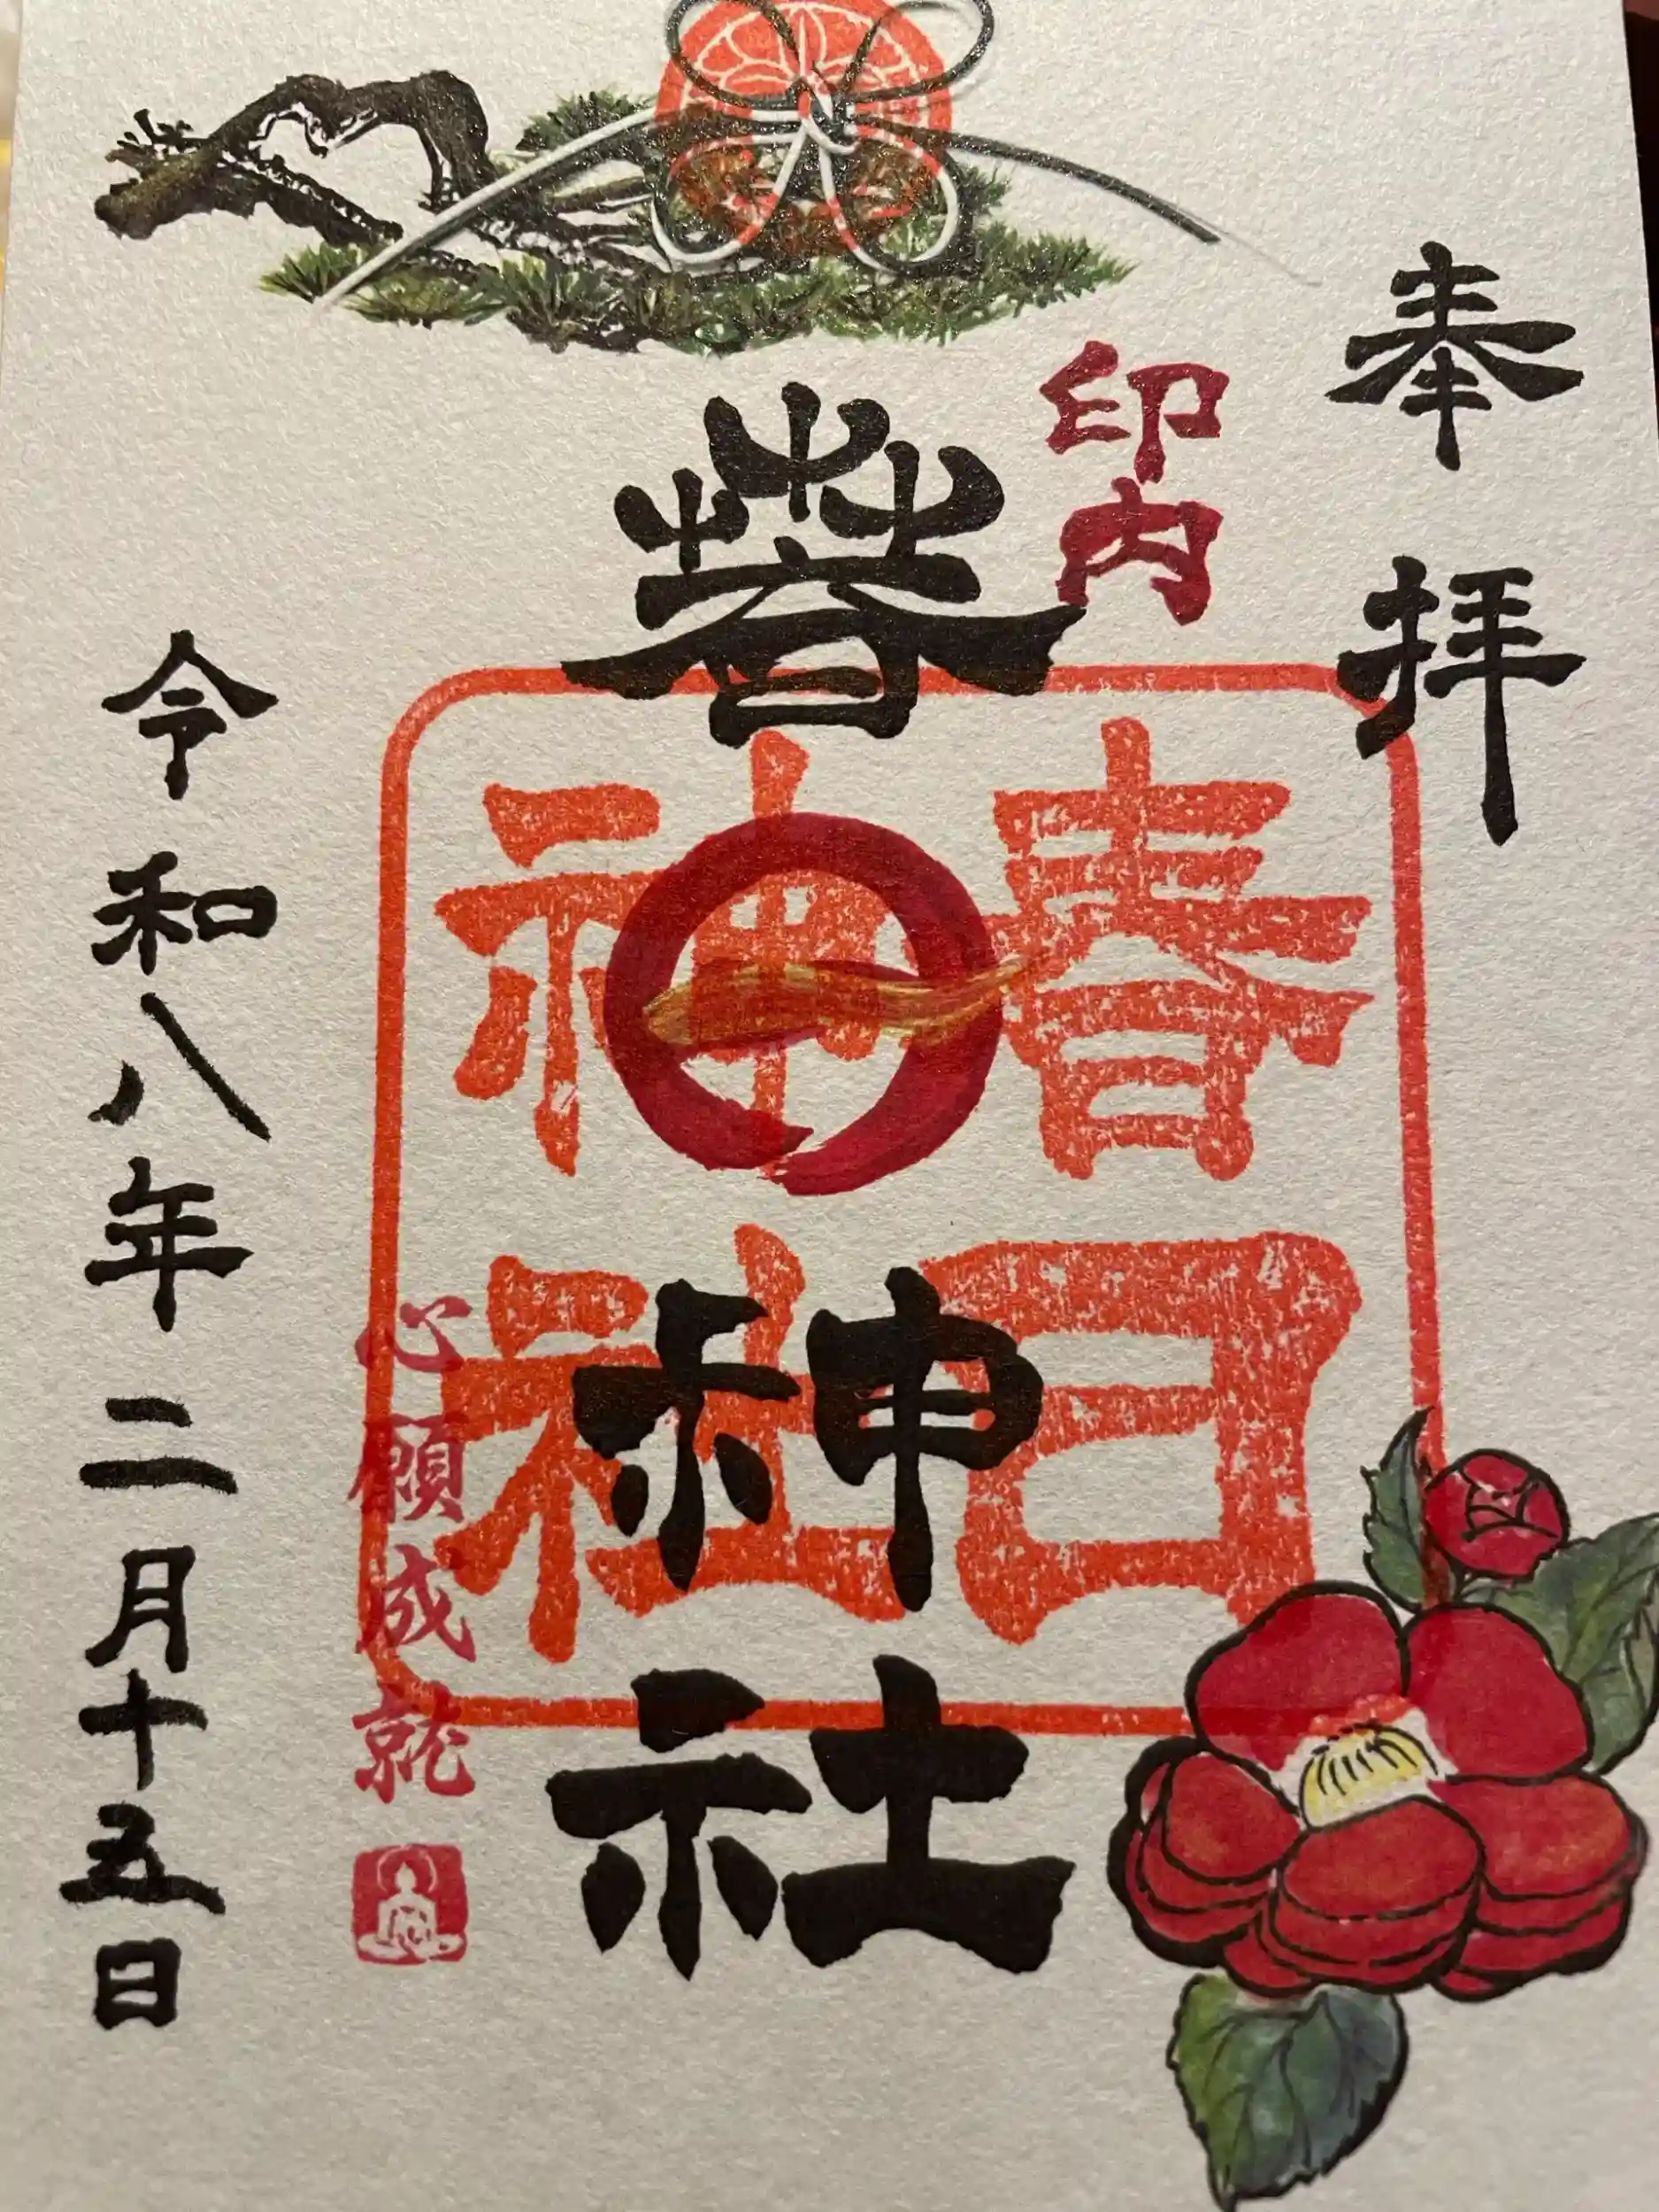 奉拝
印内
春日神社
春日
神社
心願成就
令和八年二月十五日